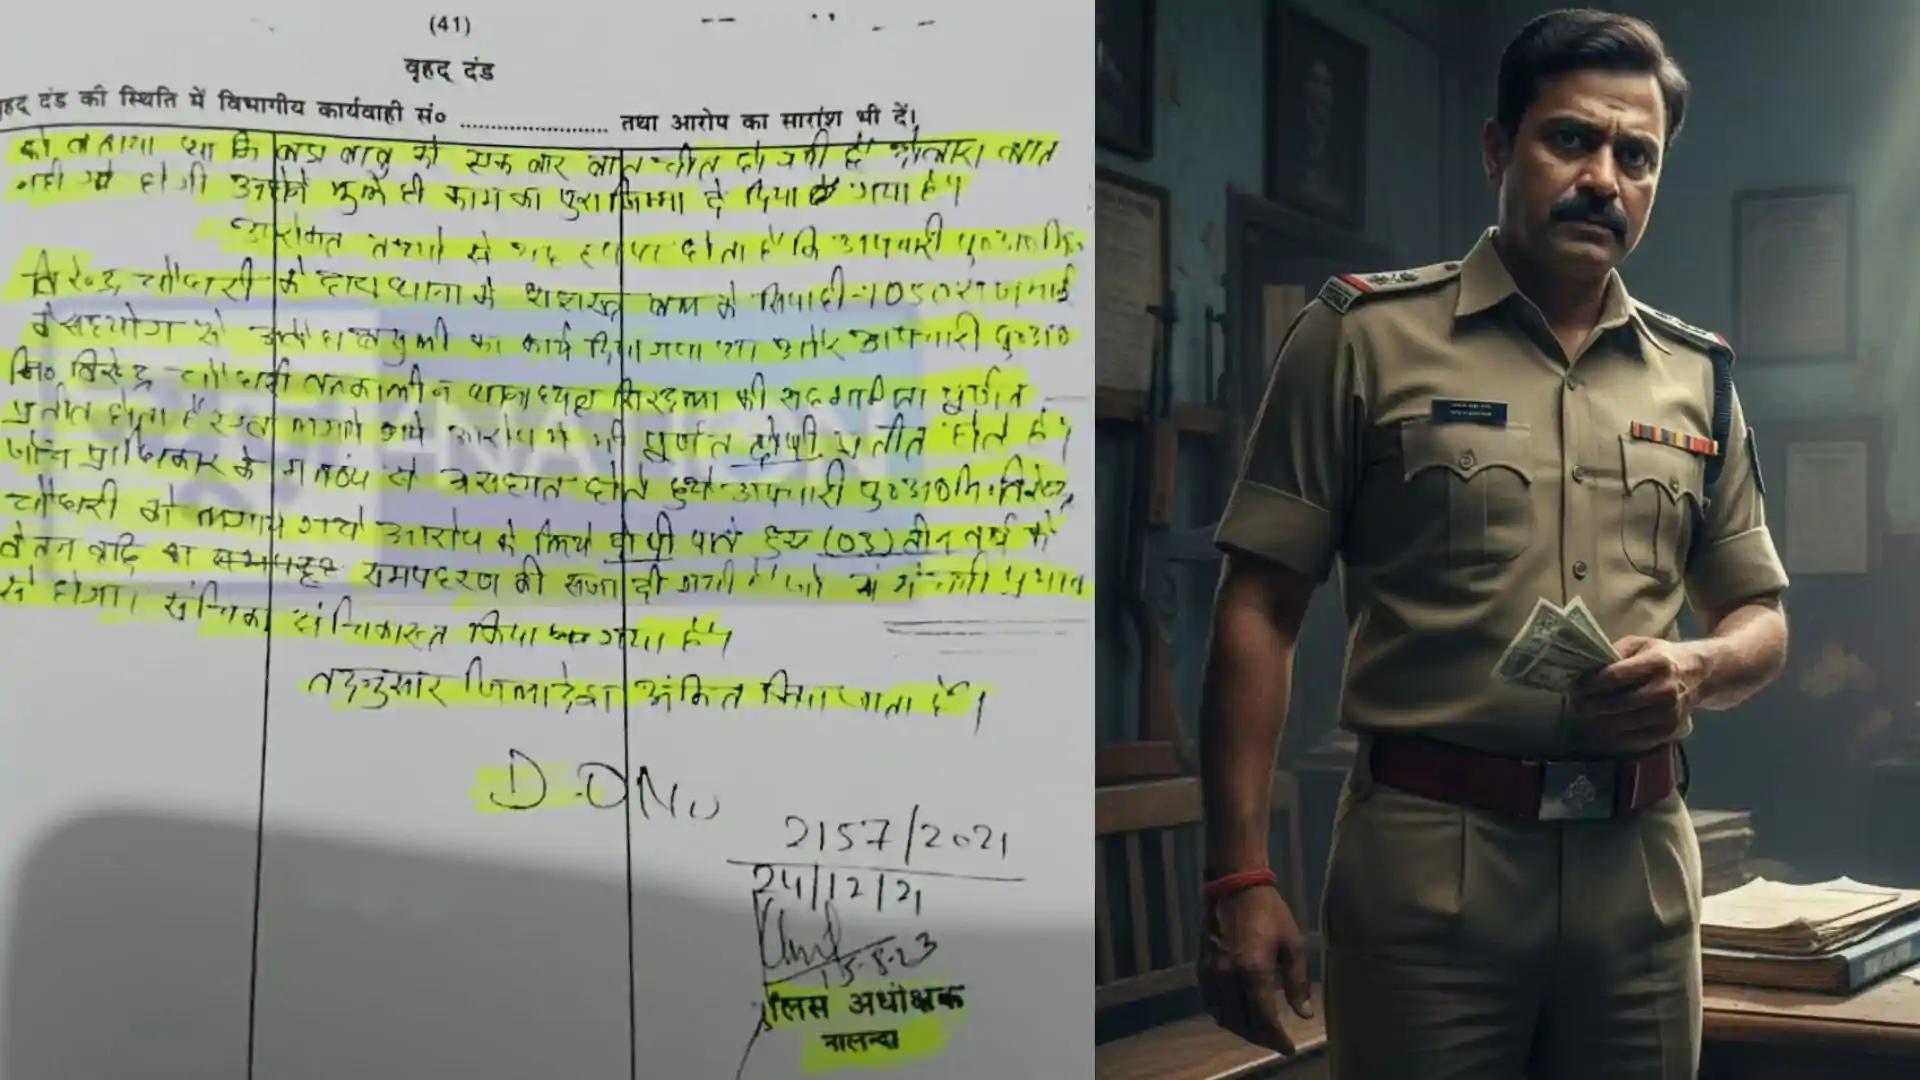 (41)
वृहद् दंड
हद् दंड की स्थिति में विभागीय कार्यवाही सं० ........................ तथा आरोप का सारांश भी दें।
को बताया था कि बाबु से एक बार बात-चीत हो गयी है दोबारा बात
नहीं होगी उन्होंने मुझे ही काम का पुरा जिम्मा दे दिया गया है"।
उपरोक्त तथ्यों से यह स्पष्ट होता है कि अपचारी पु०अ०नि०
विरेन्द्र चौधरी के द्वारा थाना के सशस्त्र बल के सिपाही-
के सहयोग से वसुली का कार्य किया गया था और अपचारी पु०अ०
नि० विरेन्द्र चौधरी तत्कालीन थानाध्यक्ष सिरदला की सहभागिता पूर्णत
प्रतीत होता है लगाये गये आरोप में भी पूर्णत दोषी प्रतीत होते हैं।
जाँच प्राधिकार के मंतव्य से असहमत होते हुये अपचारी पु०अ०नि० विरेन्द्र
चौधरी को लगाये गये आरोप के लिये दोषी पाते हुए (03) तीन वर्ष के
वेतन वृद्धि का समपहरण की सजा दी जाती है जो प्रभाव
से होगा। संचिका संचिकास्त किया गया है"।
तदनुसार जिलादेश अंकित किया जाता है"।
D.O No
2157/2021
24/12/21
लिस अधीक्षक
नालन्दा
NATION